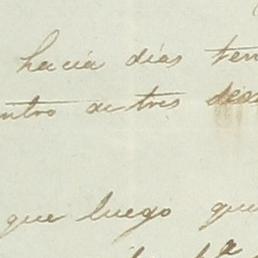 hacia días ten
entro de tres dias
que luego que